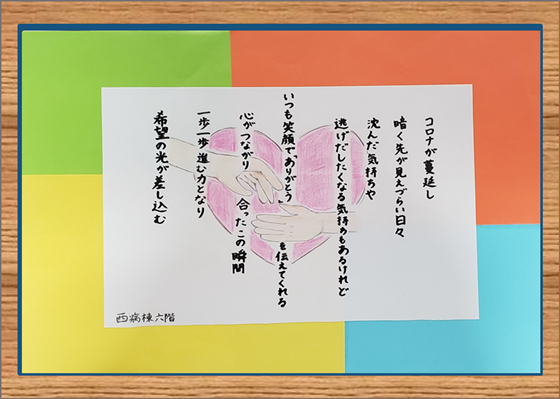 コロナが蔓延し
暗く先が見えづらい日々
沈んだ気持ちや
逃げだしたくなる気持ちもあるけれど
いつも笑顔で「ありがとう」を伝えてくれる
心がつながり合ったこの瞬間
一歩一歩進む力となり
希望の光が差し込む
西病棟六階